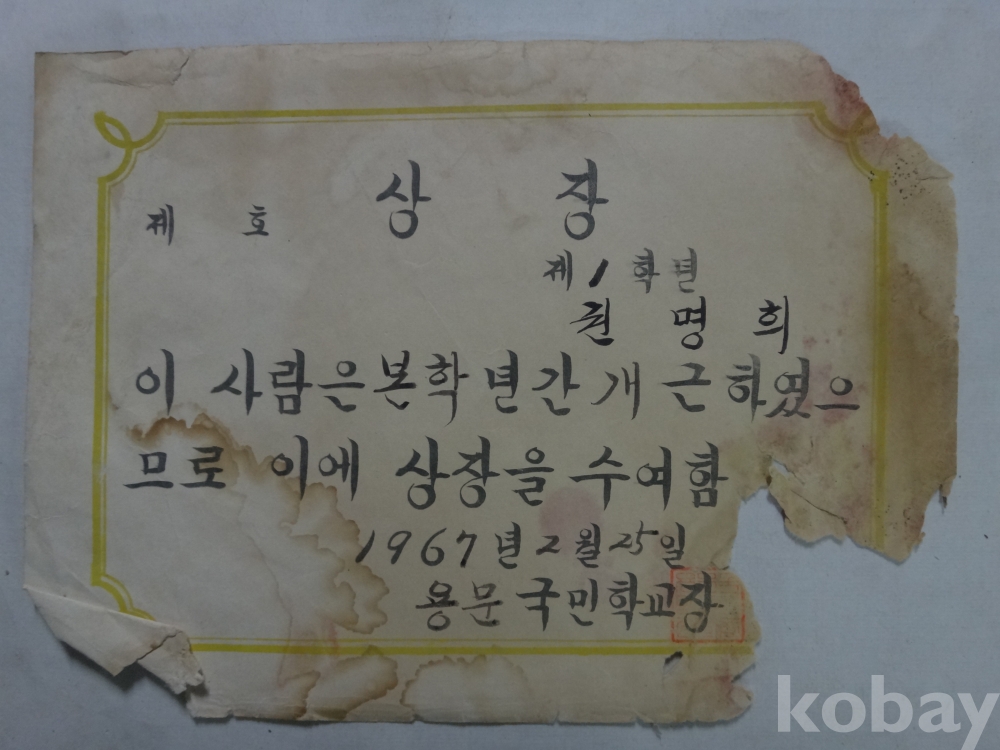 상 장
제 호
제1학년
권 명 희
이 사람은 본학년간 개근하였으
므로 이에 상장을 수여함
1967년 2월 25일
용문국민학교장
kobay